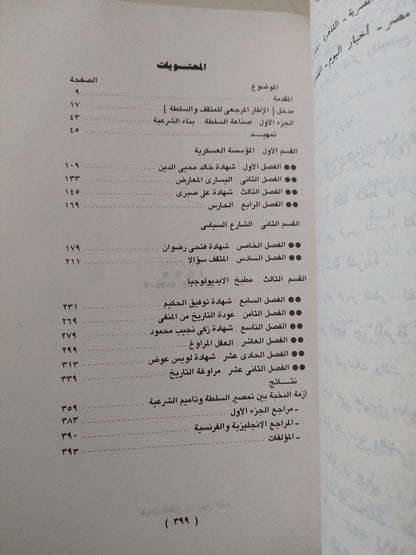 المحتويات
الموضوع الصفحة
المقدمة ٩
مدخل [ الإطار المرجعى للمثقف والسلطة ] ١٧
الجزء الأول . صناعة السلطة .. بناء الشرعية ٤٣
تمهيد ٤٥
القسم الأول . المؤسسة العسكرية
●● الفصل الأول . شهادة خالد محيى الدين ١٠٩
●● الفصل الثانى . اليسارى المعارض ١٣٣
●● الفصل الثالث . شهادة على صبرى ١٤٥
●● الفصل الرابع . الحارس ١٦٩
القسم الثانى . الشارع السياسى
●● الفصل الخامس . شهادة فتحى رضوان ١٧٩
●● الفصل السادس . المثقف سؤالا ٢١١
القسم الثالث . مطبخ الايديولوجيا
●● الفصل السابع . شهادة توفيق الحكيم ٢٣١
●● الفصل الثامن . عودة التاريخ من المنفى ٢٦٩
●● الفصل التاسع . شهادة زكى نجيب محمود ٢٧٩
●● الفصل العاشر . العقل المراوغ ٢٩٩
●● الفصل الحادى عشر . شهادة لويس عوض ٣١٣
●● الفصل الثانى عشر . مراوغة التاريخ ٣٣٩
نتائج
أزمة النخبة بين تمصير السلطة وتأميم الشرعية ٣٥٩
ـ مراجع الجزء الأول ٣٨٣
ـ المراجع الانجليزية والفرنسية ٣٩٠
ـ المؤلفات ٣٩٣
( ٣٩٩ )
مصرية ـ القاهرة
مصر ـ أخبار اليوم ـ